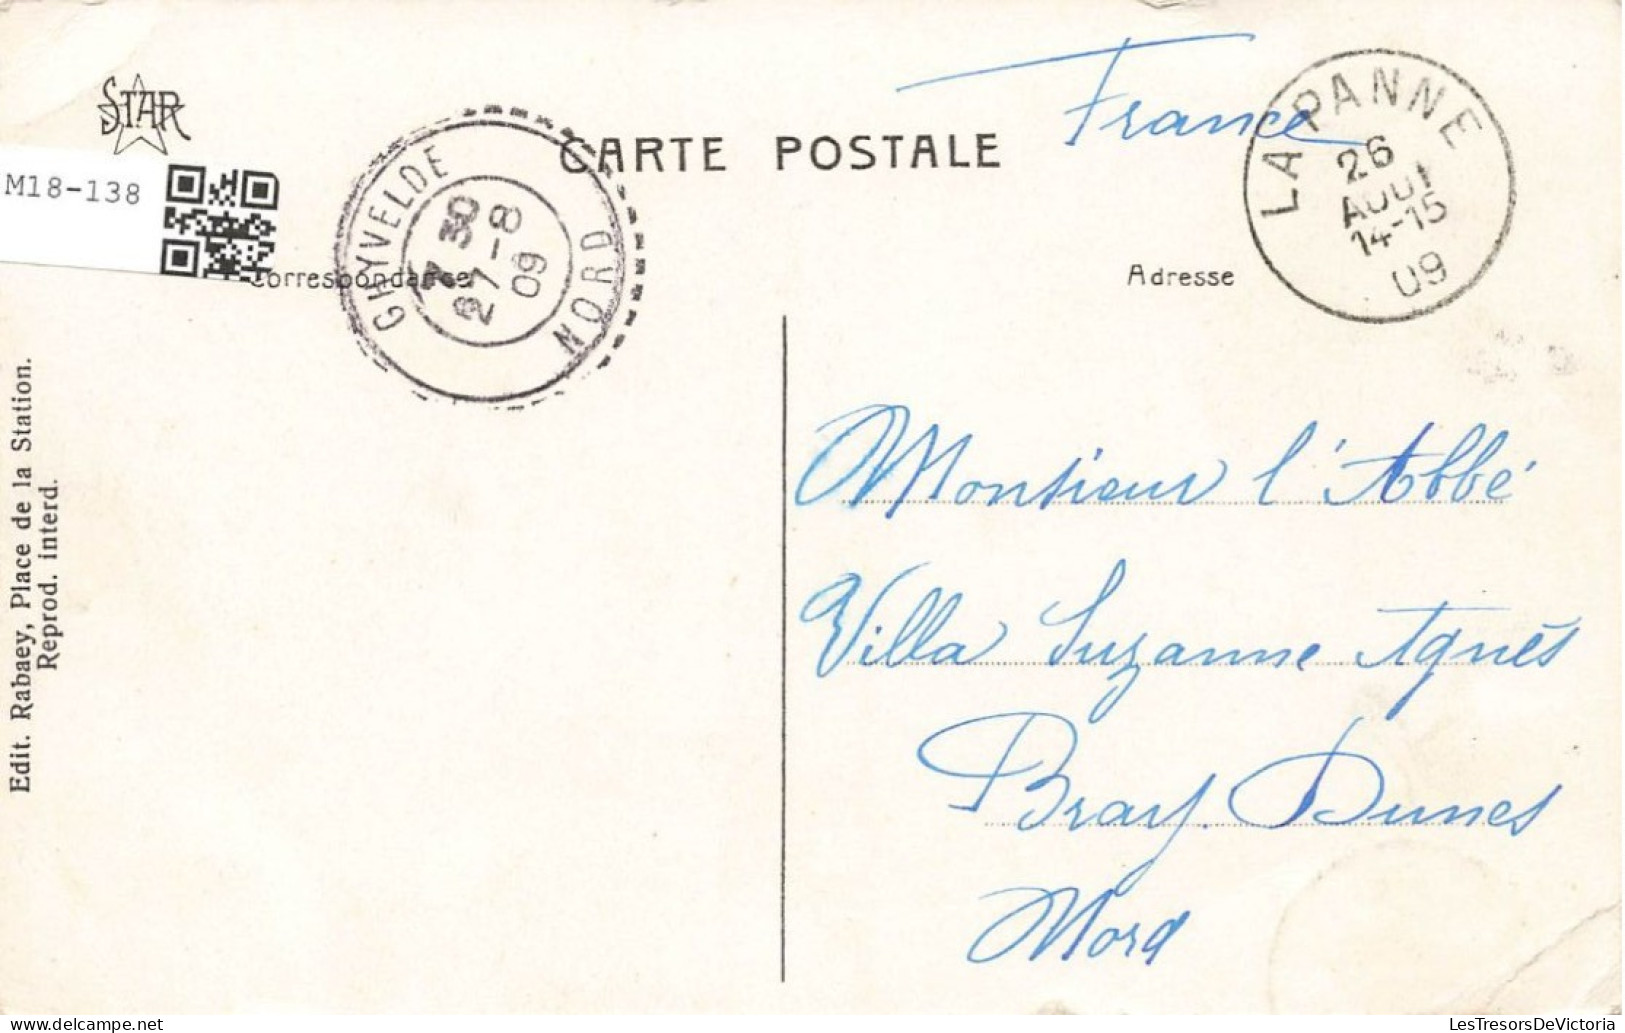 STAR
France
CARTE POSTALE
LA PANNE
26
AOUT
14-15
09
M18-138
GHYVELDE
7 30
27-8
09
NORD
Correspondance
Adresse
Edit. Rabaey, Place de la Station.
Reprod. interd.
Monsieur l'Abbé
Villa Suzanne Agnès
Bray. Dunes
Nord
LesTresorsDeVictoria